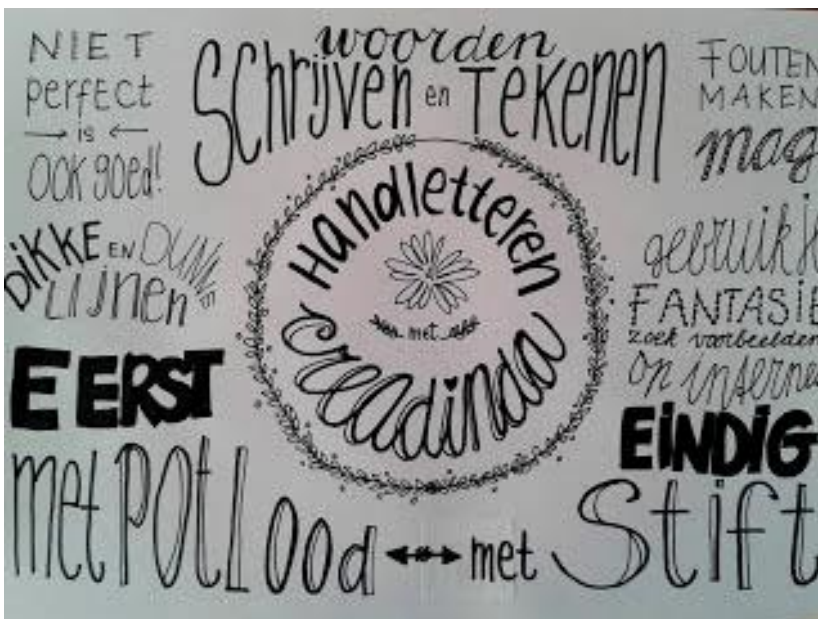 NIET
perfect
is
OOK goed!
woorden
Schrijven en Tekenen
FOUTEN
MAKEN
mag
DIKKE EN DUNNE
LIJNEN
Handletteren
met
creadinda
gebruik je
FANTASIE
zoek voorbeelden
op internet
EERST
met POTLOod
EINDIG
met Stift